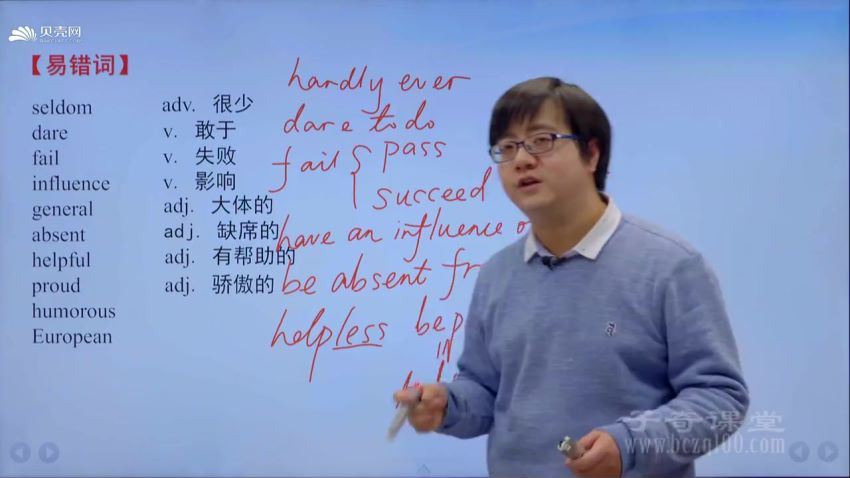 贝壳网
【易错词】
seldom adv. 很少
dare v. 敢于
fail v. 失败
influence v. 影响
general adj. 大体的
absent adj. 缺席的
helpful adj. 有帮助的
proud adj. 骄傲的
humorous
European
hardly ever
dare to do
fail { pass
succeed
have an influence o
be absent fr
helpless be p
子奇课堂
www.bczq100.com